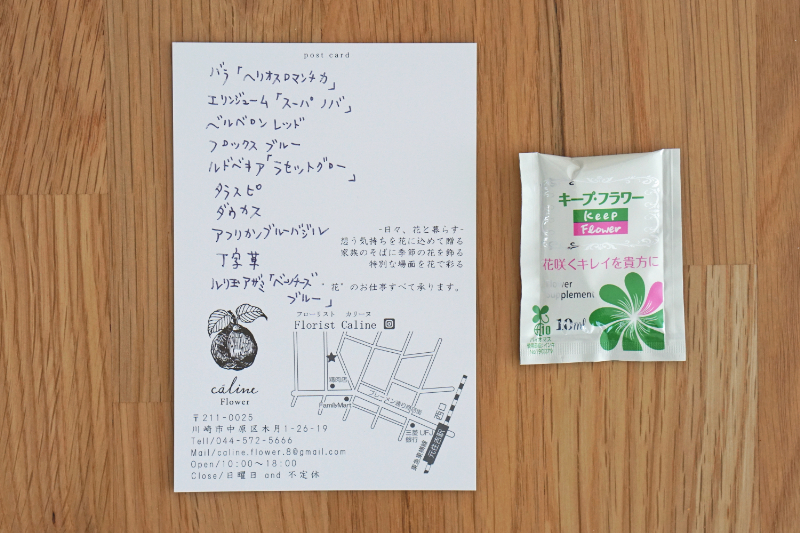 post card
バラ「ヘリオスロマンチカ」
エリンジューム「スーパーノバ」
ベルベロン レッド
フロックス ブルー
ルドベキア「ラセットグロー」
タラスピ
ダウカス
アフリカンブルーバジル
丁字草
ルリ玉アザミ「ベッチーズブルー」
-日々、花と暮らす-
想う気持ちを花に込めて贈る
家族のそばに季節の花を飾る
特別な場面を花で彩る
"花"のお仕事すべて承ります。
フローリスト カリーヌ
Florist Caline
câline
Flower
〒211-0025
川崎市中原区木月1-26-19
Tell/044-572-5666
Mail/caline.flower.8@gmail.com
Open/10:00〜18:00
Close/日曜日 and 不定休
FamilyMart
ブレーメン通り商店街
三菱UFJ
銀行
西口
元住吉駅
東急東横線
キープ・フラワー
Keep
Flower
花咲くキレイを貴方に
1.0ml